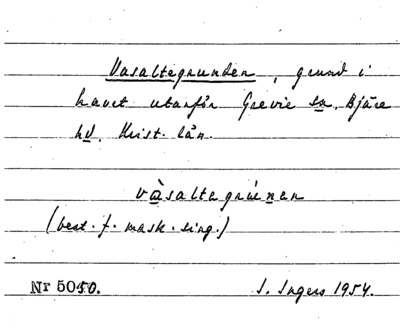 Vasaltegrunden, grund i
havet utanför Grevie sn, Bjäre
hd. Krist. län.
vàsaltegrúnen
(best. f. mask. sing.)
Nr 5050. I. Ingers 1954.